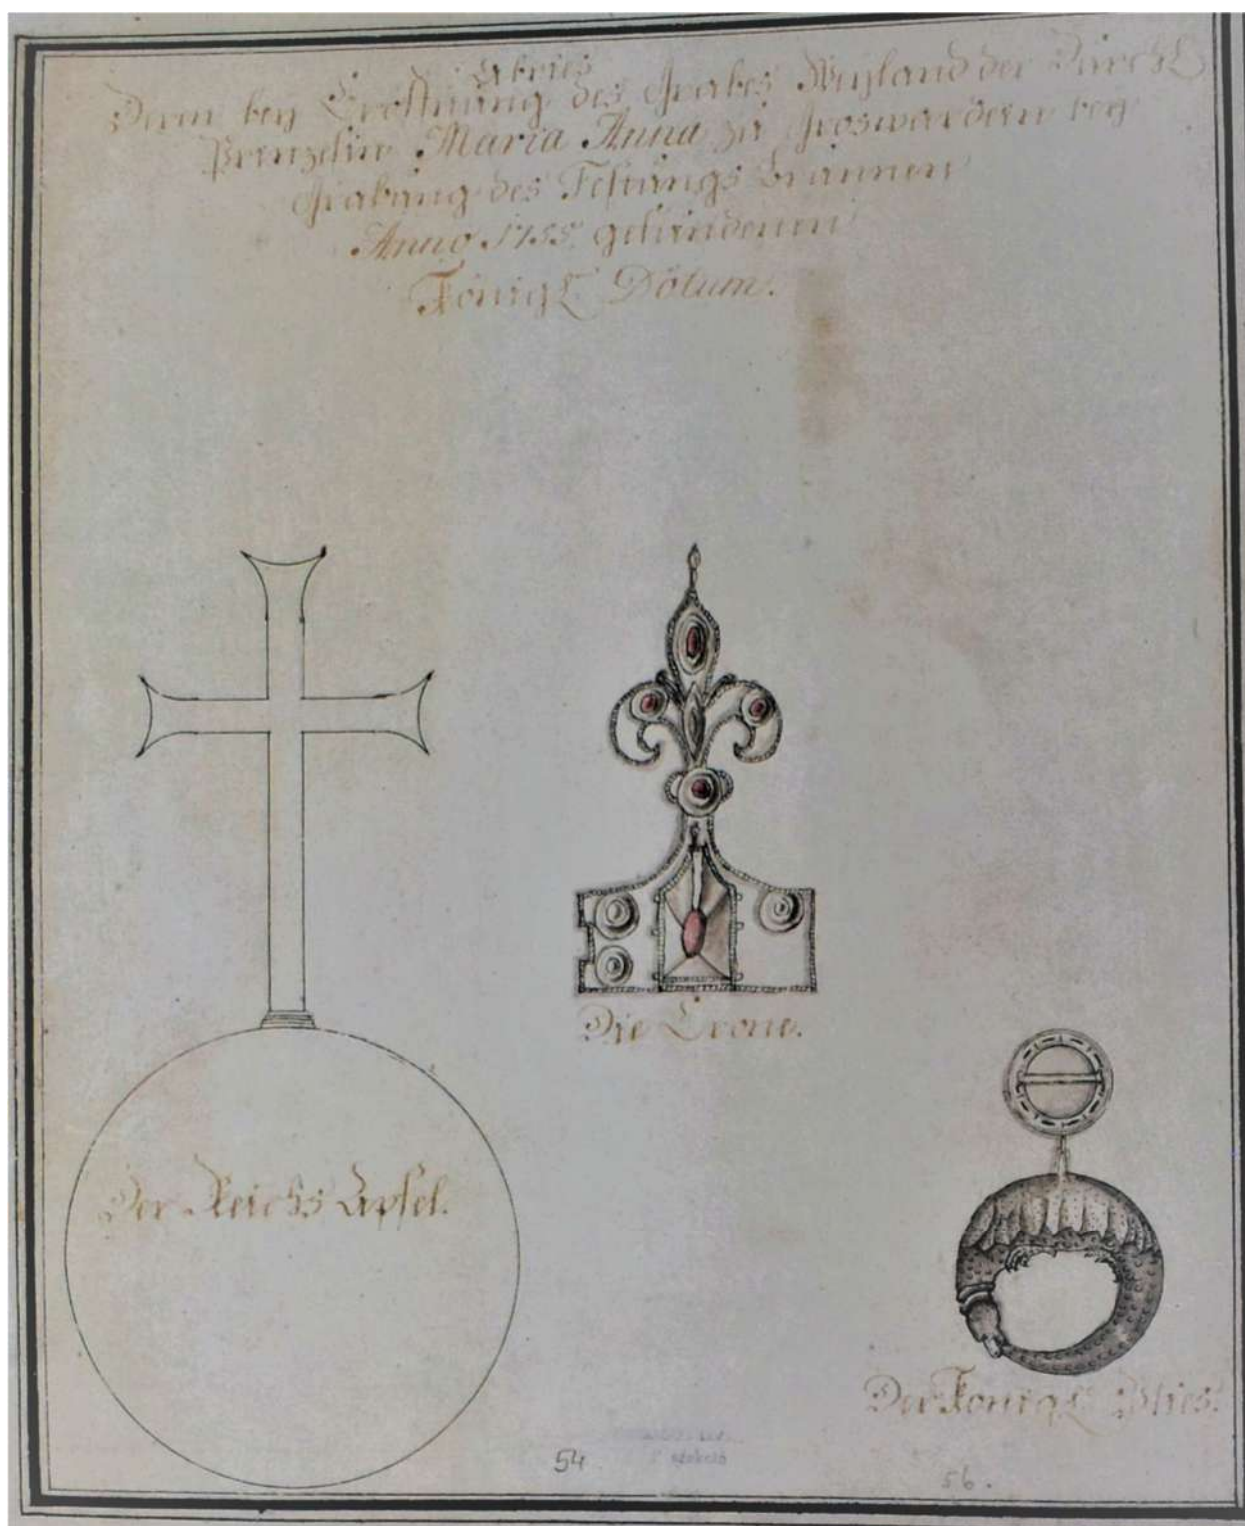 Abries
Deren bey Eröffnung des Grabes Weyland der Dürchl
Prinzesin Maria Anna zu Groswardein bey
Grabung des Festungs Brunnen
Anno 1755 gefundenen
Königl Dotum.
Die Crone.
Der Reichs Apfel.
Der Königl Vlies.
54
56.